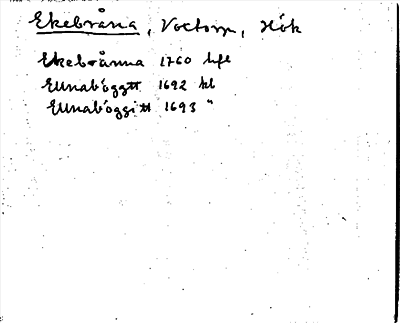 Ekebråna, Voxtorp, Hök
Ekebrånna 1760 hfl
Ellnaböggtt 1692 kl
Ellnaböggitt 1693 "